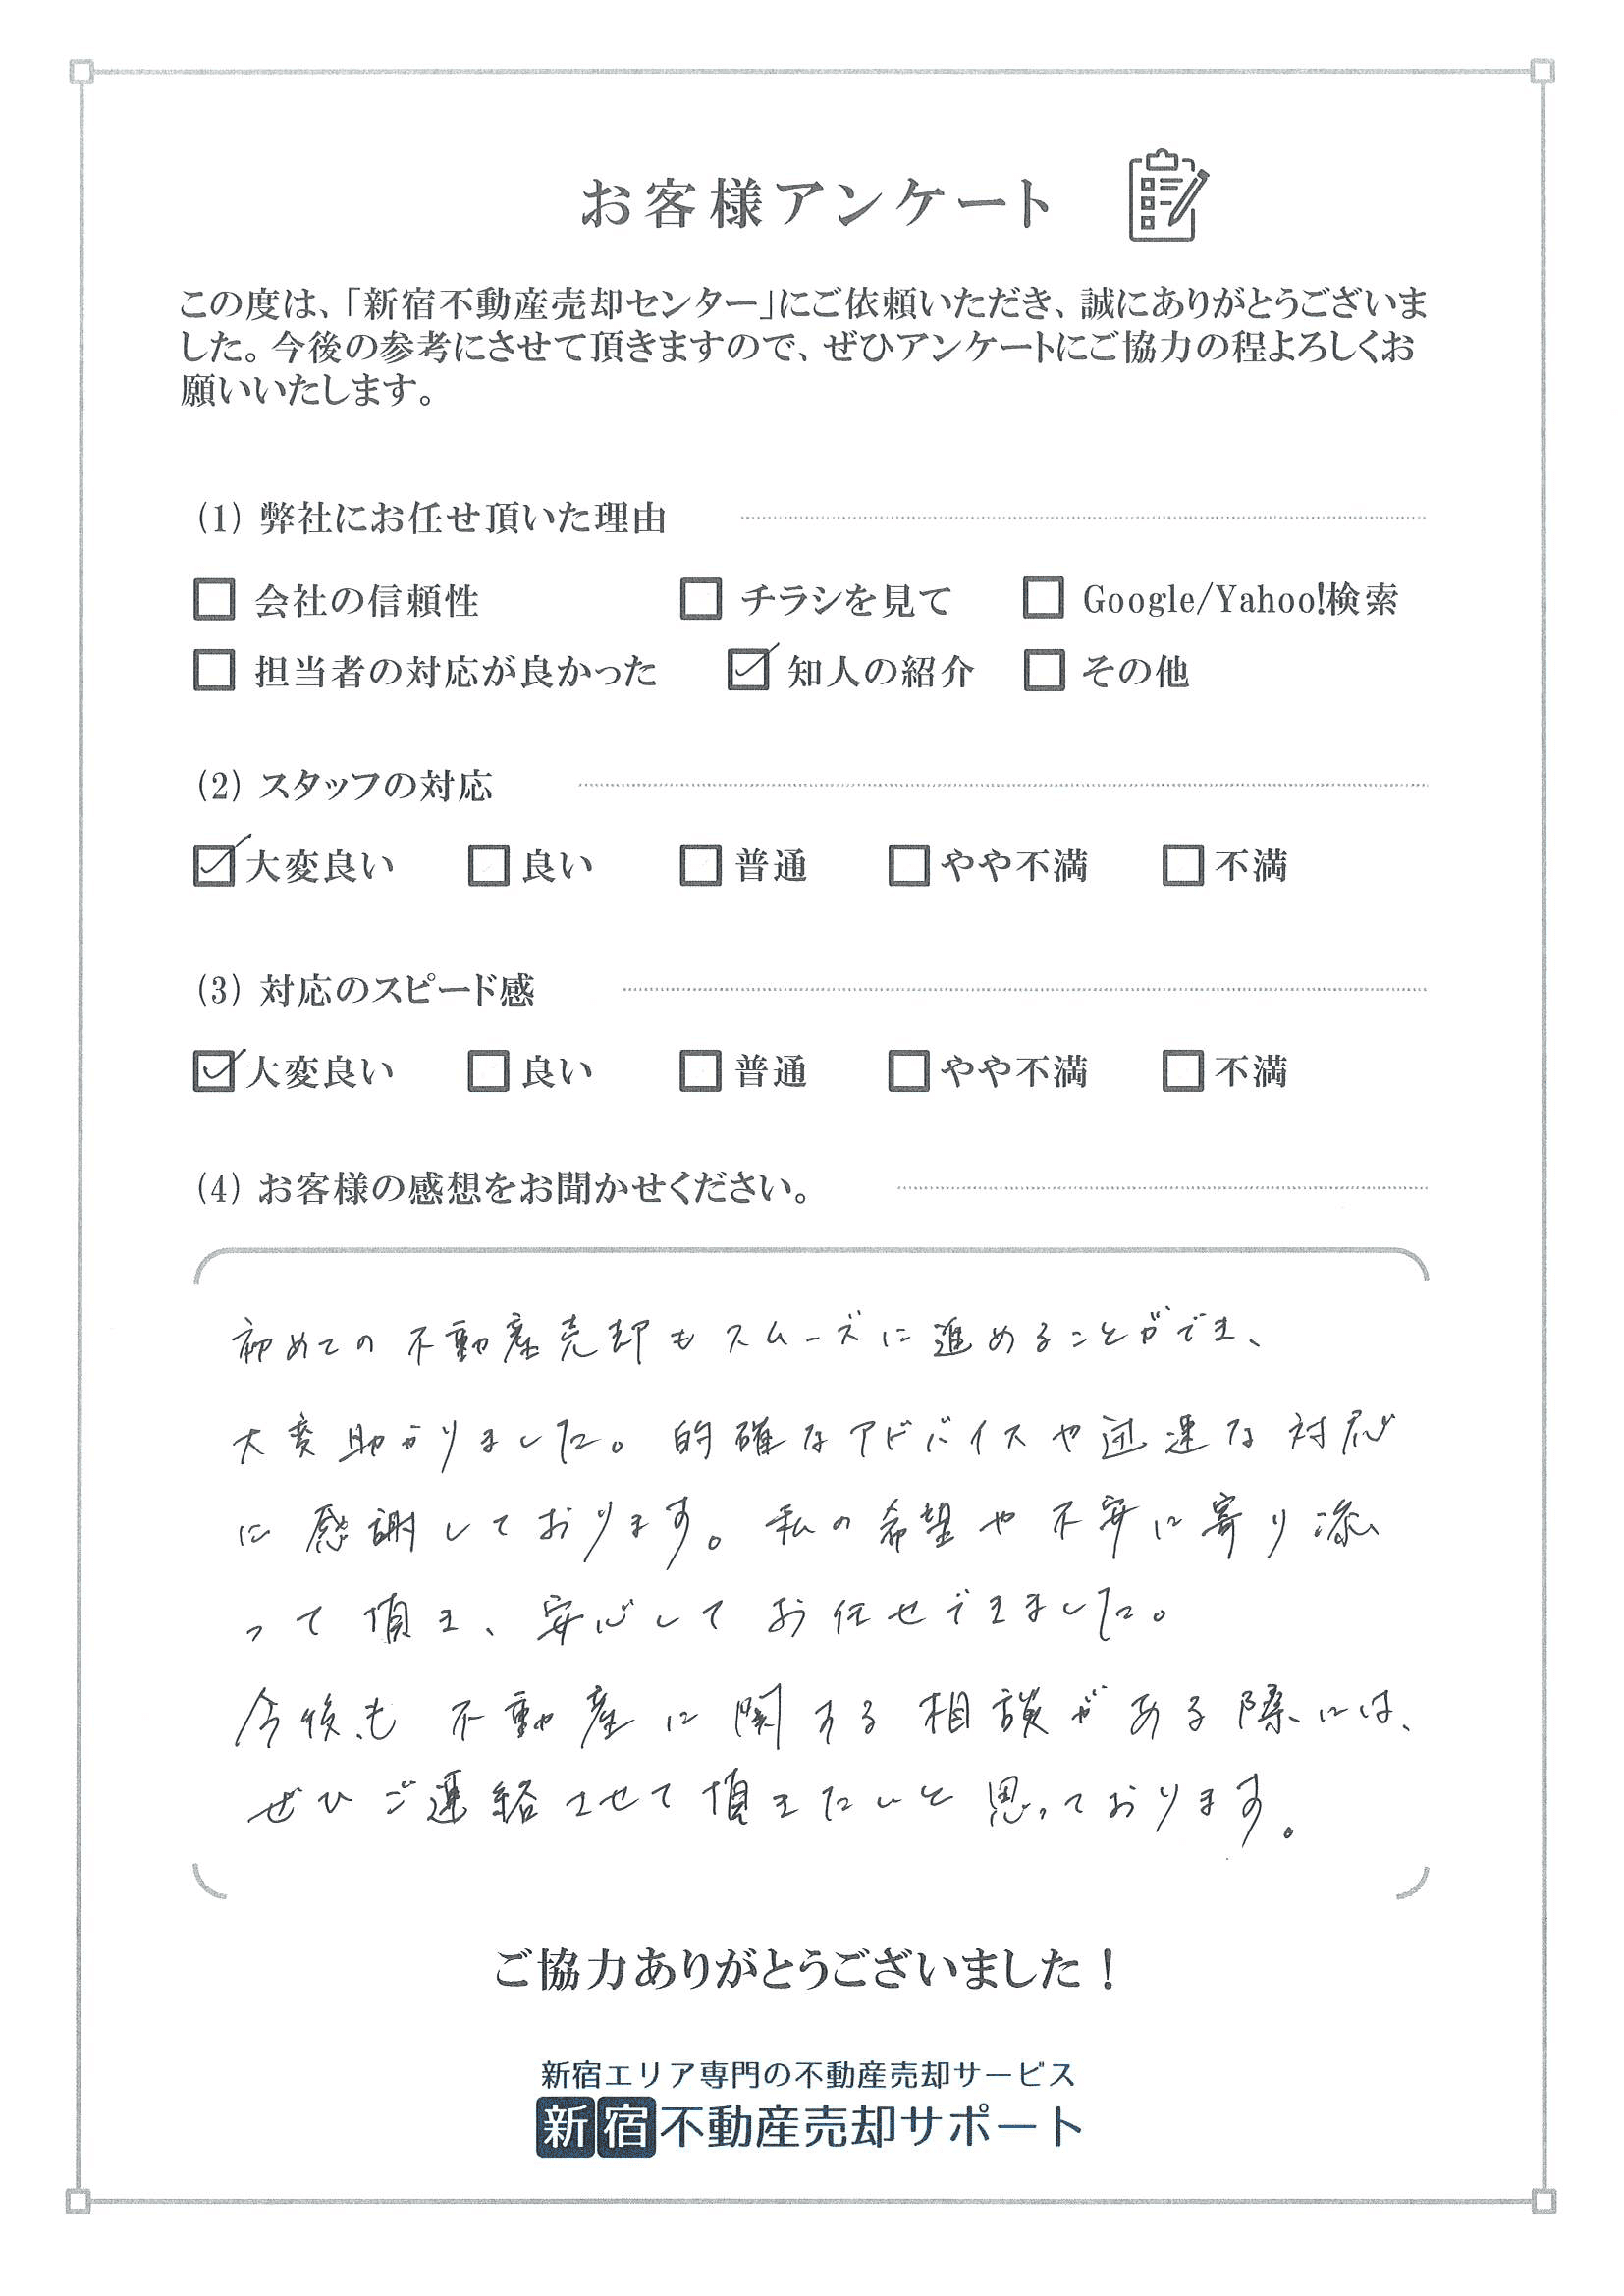 お客様アンケート
この度は、「新宿不動産売却センター」にご依頼いただき、誠にありがとうございま
した。今後の参考にさせて頂きますので、ぜひアンケートにご協力の程よろしくお
願いいたします。
(1) 弊社にお任せ頂いた理由
会社の信頼性 チラシを見て Google/Yahoo!検索
担当者の対応が良かった 知人の紹介 その他
(2) スタッフの対応
大変良い 良い 普通 やや不満 不満
(3) 対応のスピード感
大変良い 良い 普通 やや不満 不満
(4) お客様の感想をお聞かせください。
初めての不動産売却もスムーズに進めることができ、
大変助かりました。的確なアドバイスや迅速な対応
に感謝しております。私の希望や不安に寄り添
って頂き、安心してお任せできました。
今後も不動産に関する相談がある際には、
ぜひご連絡させて頂きたいと思っております。
ご協力ありがとうございました！
新宿エリア専門の不動産売却サービス
新宿不動産売却サポート